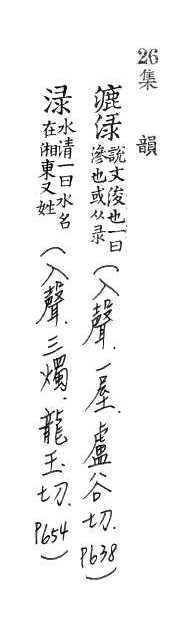 26
集韻
漉淥 說文浚也一曰
滲也或从录
(入聲．一屋．盧谷切．P638)
淥 水清一曰水名
在湘東又姓
(入聲．三燭．龍玉切．P654)